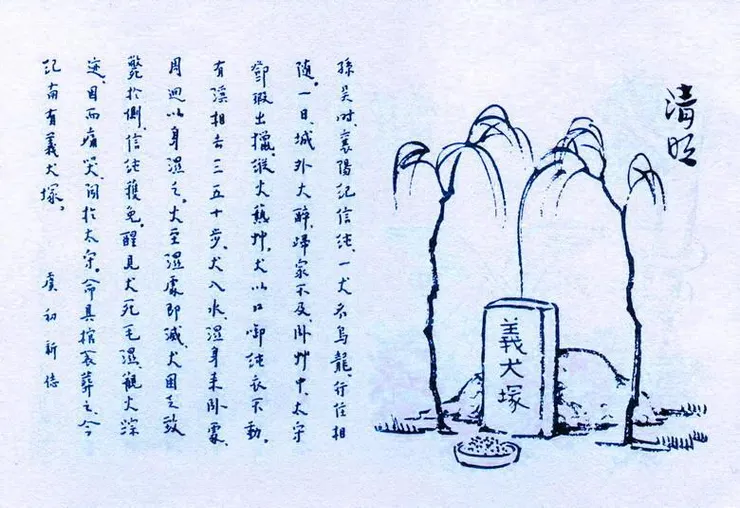 清明
孫吴时、襄陽紀信純、一犬名烏龍、行住相
随。一日、城外大醉、歸家不及、卧艸中。太守
鄧瑕出獵、縱火爇艸。犬以口啣純衣不動。
有溪相去三五十步、犬入水、濕身来卧處、
周迴以身濕之。火至濕處即滅。犬困乏致
斃於側。信純獲免。醒見犬死毛濕、觀火踪
迹、因而痛哭。聞於太守。命具棺衾葬之。今
紀南有義犬塚。 虞初新誌
義犬塚